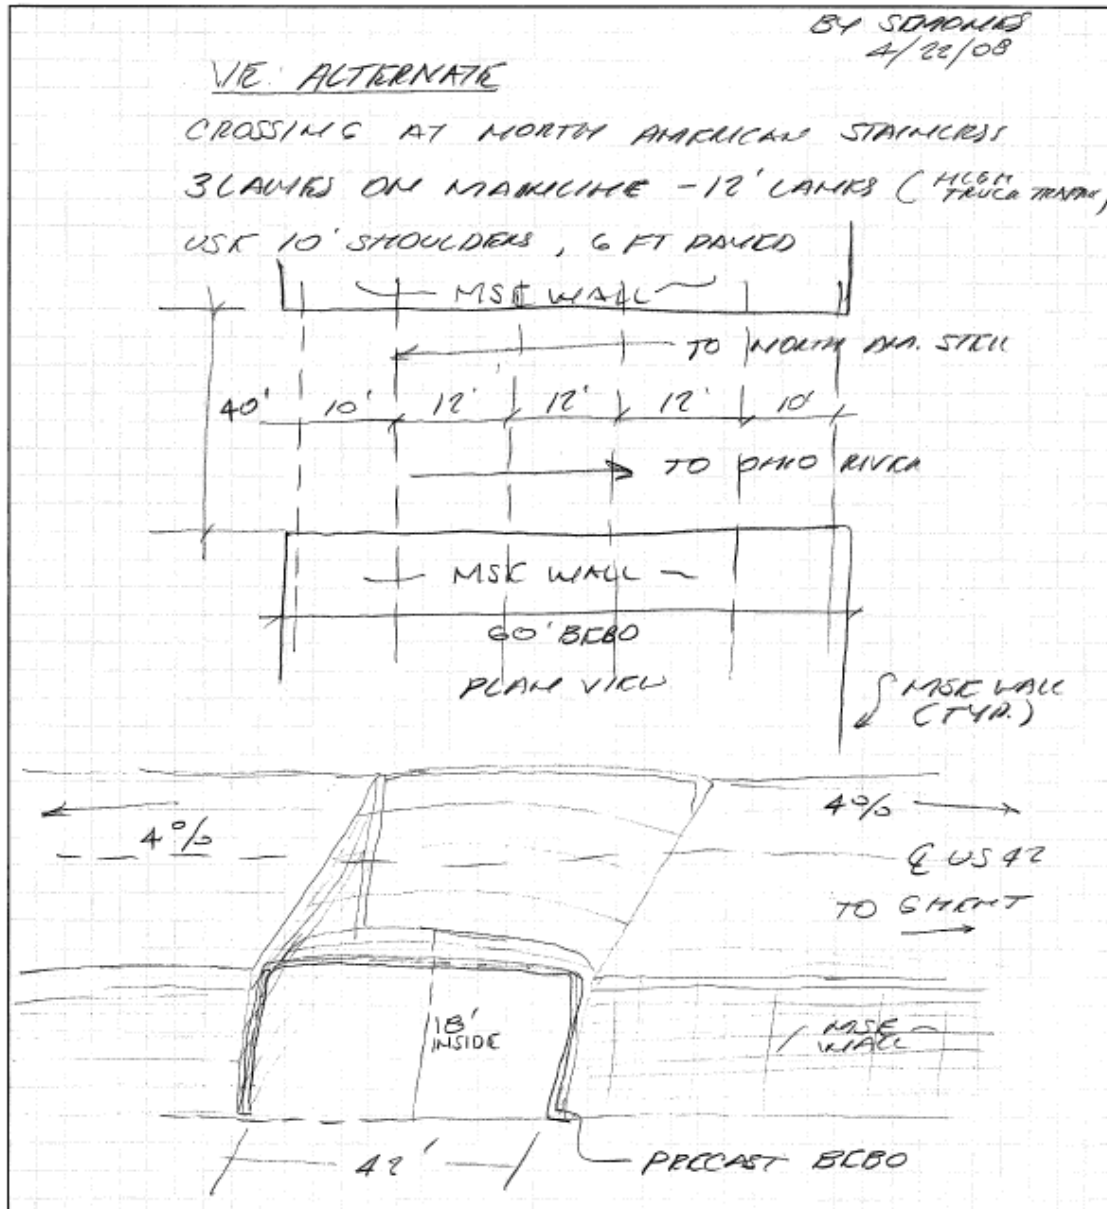 BY SEMONES
4/22/08
VE ALTERNATE
CROSSING AT NORTH AMERICAN STAINLESS
3 LANES ON MAINLINE - 12' LANES (HIGH TRUCK TRAFFIC)
USE 10' SHOULDERS, 6 FT PAVED
MSE WALL
TO NORTH AM. STEEL
40' 10' 12' 12' 12' 10'
TO OHIO RIVER
MSE WALL
60' BEBO
PLAN VIEW
MSE WALL
(TYP.)
4% 4%
℄ US 42
TO GHENT
18'
INSIDE
MSE
WALL
42'
PRECAST BEBO